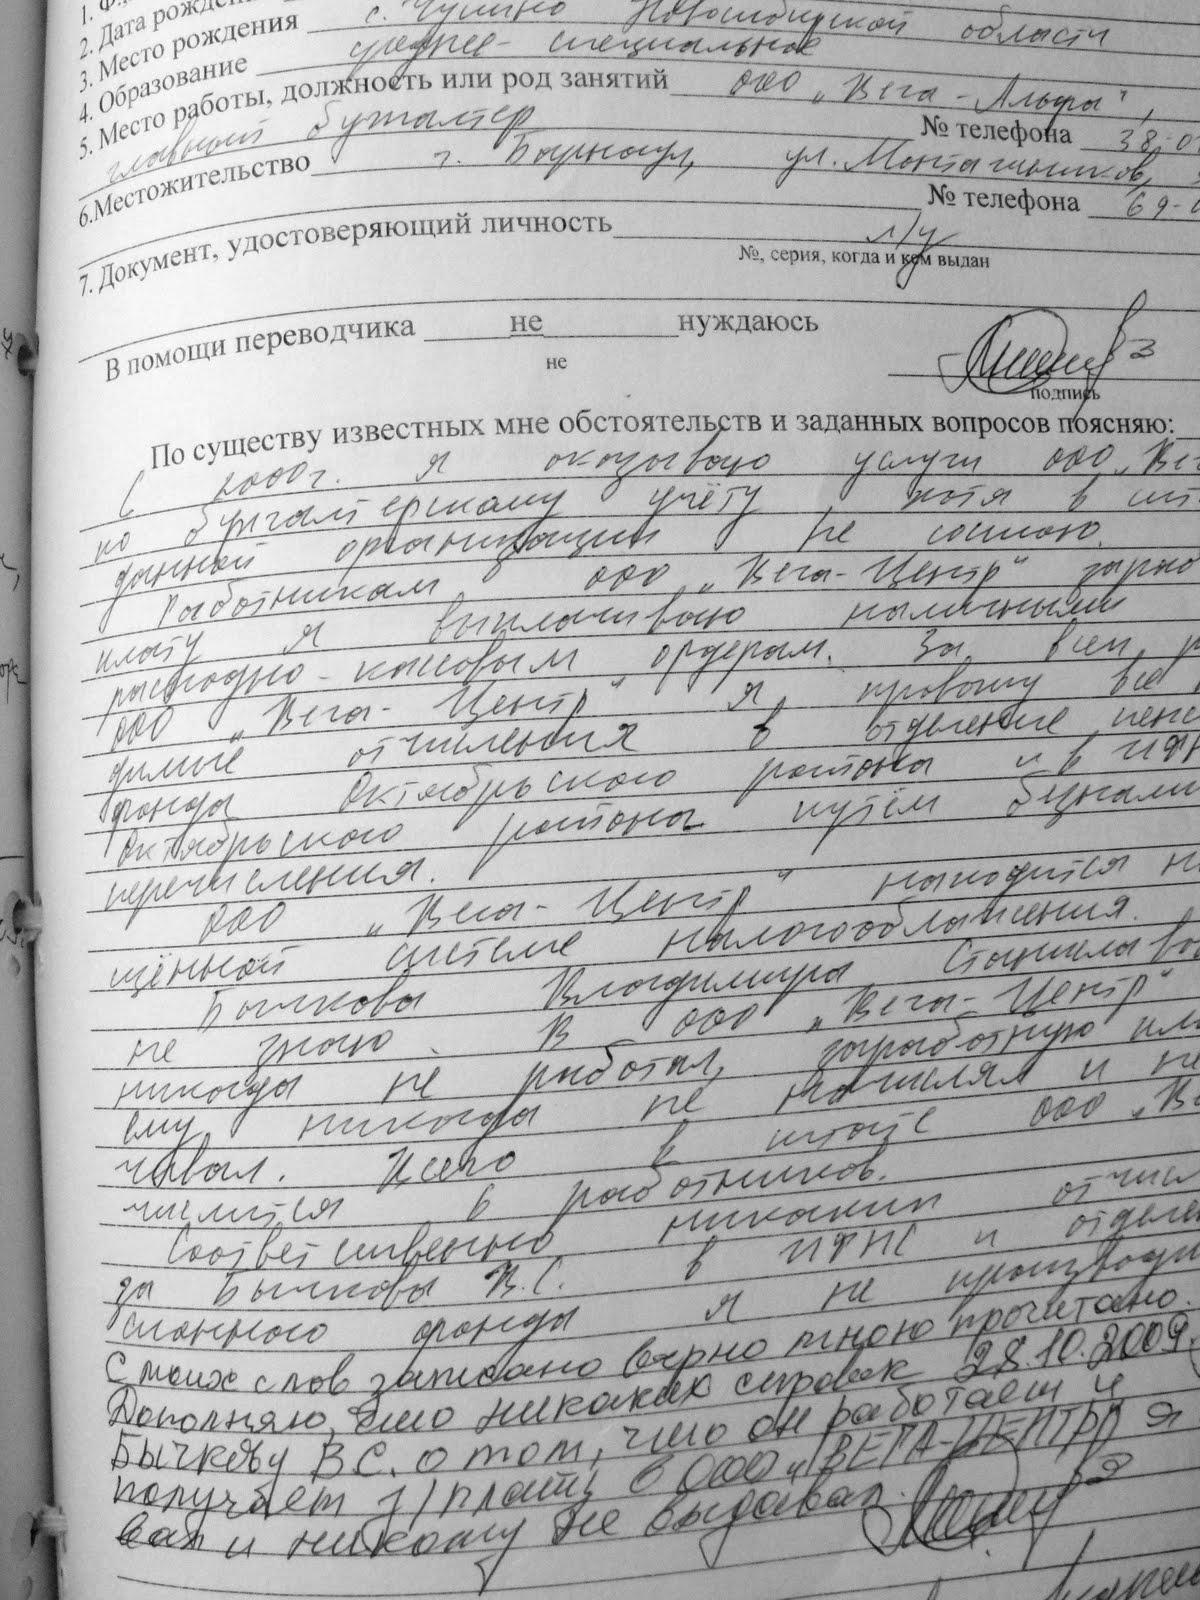 1. Ф.
2. Дата рожден
3. Место рождения с. Чулино Новосибирской области
4. Образование среднее-специальное
5. Место работы, должность или род занятий ООО „Вега-Альфа",
главный бухгалтер № телефона 38-0
6.Местожительство г. Барнаул, ул. Монтажников,
№ телефона 69-
7. Документ, удостоверяющий личность л/у
№, серия, когда и кем выдан
В помощи переводчика не нуждаюсь
не
подпись
По существу известных мне обстоятельств и заданных вопросов поясняю:
С 2000г. я оказываю услуги ООО „Вег
по бухгалтерскому учёту хотя в шт
данной организации не состою.
Работникам ООО „Вега-Центр" зараб
плату я выплачиваю наличными
расходно-кассовым ордерам. За всех р
ООО „Вега-Центр" я провожу все
димые отчисления в отделение пенс
фонда Октябрьского района и в ИФН
Октябрьского района путём безнали
перечисления.
ООО „Вега-Центр" находится на
щённой системе налогообложения.
Бычкова Владимира Станиславо
не знаю. В ООО „Вега-Центр"
никогда не работал, заработную пла
ему никогда не начислял и не
чивал. Всего в штате ООО „Ве
числится 6 работников.
Соответственно никаких отчисл
за Бычкова В.С. в ИФНС и отделе
сионного фонда я не производи
С моих слов записано верно мною прочитано.
Дополняю, что никаких справок 28.10.2009
Бычкову В.С. о том, что он работает и
получает з/плату в ООО „ВЕГА-ЦЕНТР" я
вал и никому не выдавал.